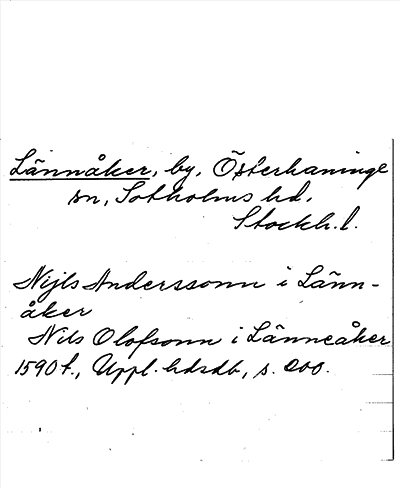 Lännåker, by, Österhaninge
sn, Sotholms hd.
Stockh. l.
Nijls Anderssonn i Länn-
åker
Nils Olofsonn i Länneåker
1590 f., Uppl. hdsdb, s. 200.